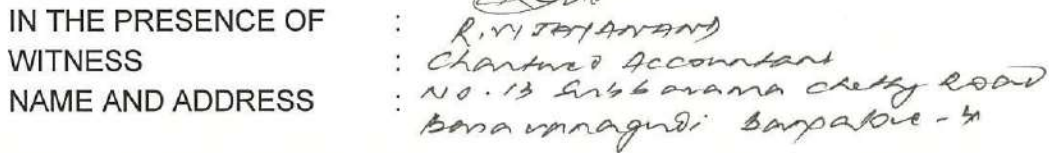 IN THE PRESENCE OF : R. VIJAYANAND
WITNESS : Chartered Accountant
NAME AND ADDRESS : No. 13 Subbarama Chetty Road
Basavanagudi Bangalore - 4